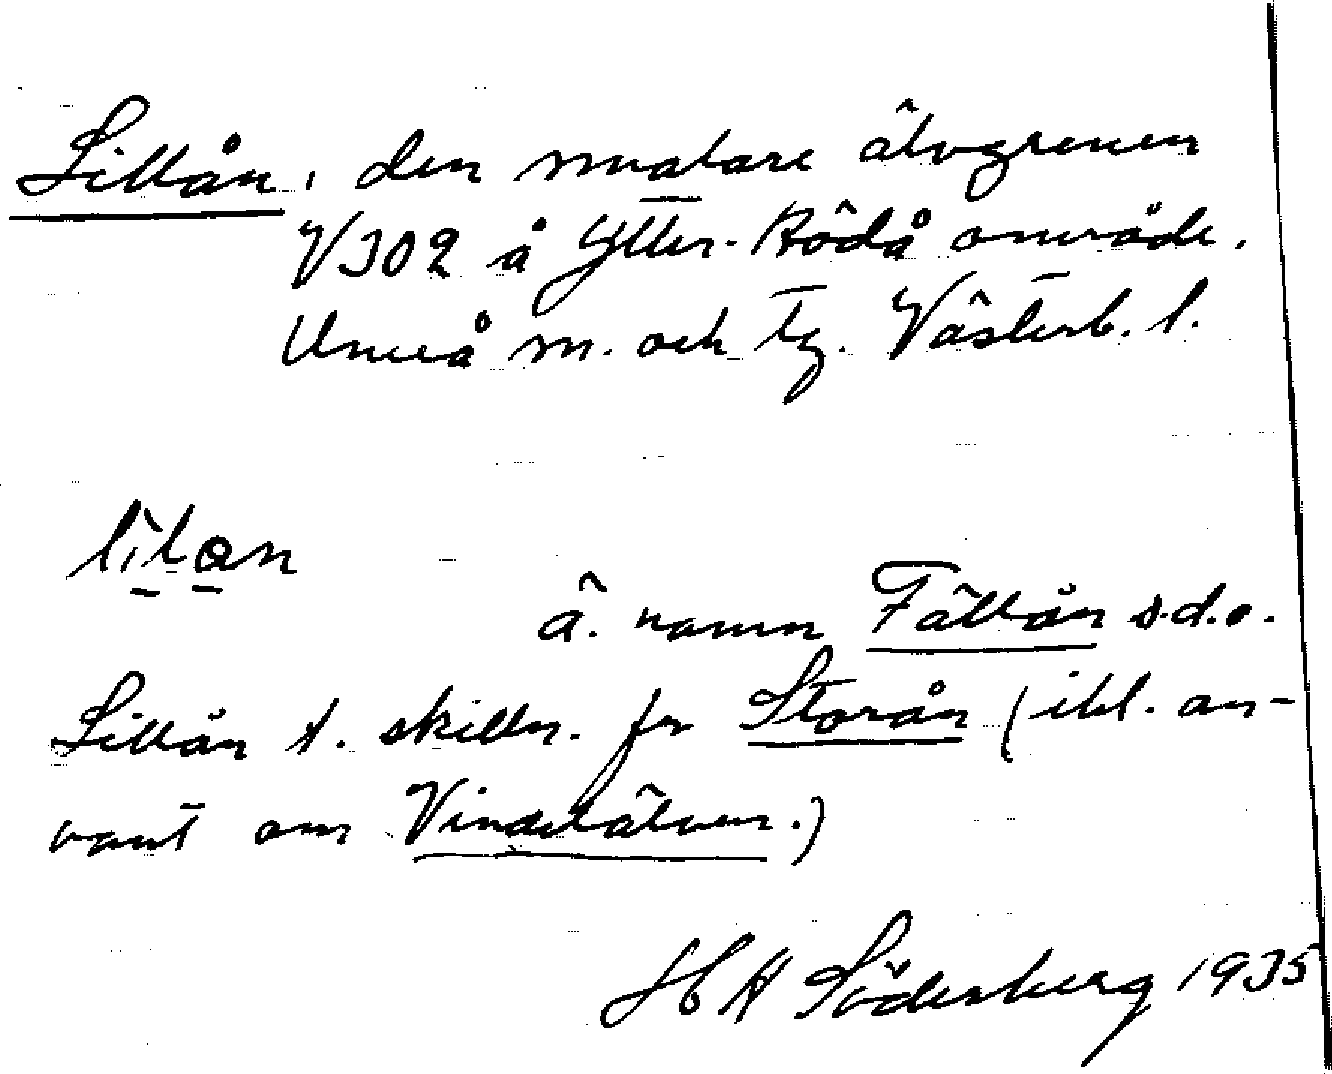 Lillån, den smalare älvgrenen
V302 å Ytter-Rödå område.
Umeå sn. och tg. Västerb. l.
lilan
Ä. namn Fällån s.d.o.
Lillån t. skilln. fr Storån (ibl. an-
vänt om Vindelälven.)
H H Söderberg 1935